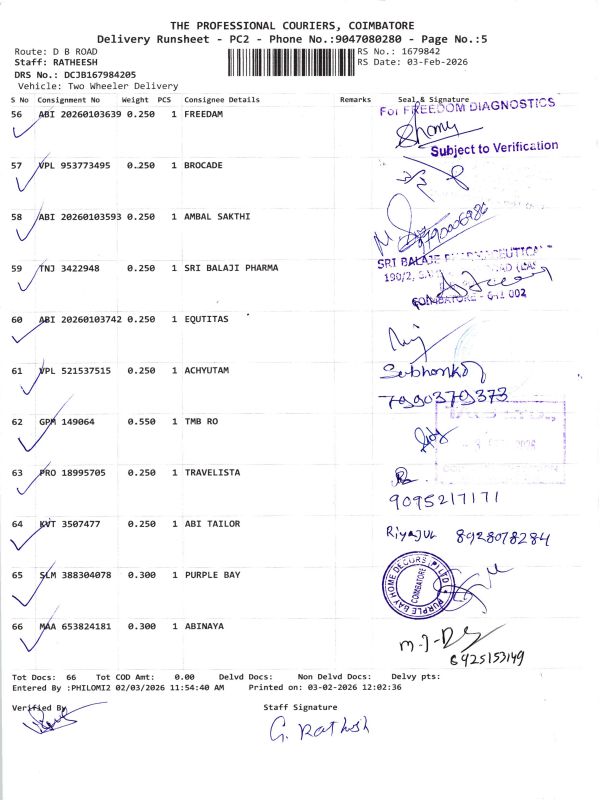 THE PROFESSIONAL COURIERS, COIMBATORE
Delivery Runsheet - PC2 - Phone No.:9047080280 - Page No.:5
Route: D B ROAD
RS No.: 1679842
Staff: RATHEESH
RS Date: 03-Feb-2026
DRS No.: DCJB167984205
Vehicle: Two Wheeler Delivery
S No Consignment No Weight PCS Consignee Details Remarks Seal & Signature
56 ABI 20260103639 0.250 1 FREEDAM
For FREEDOM DIAGNOSTICS
Subject to Verification
57 VPL 953773495 0.250 1 BROCADE
58 ABI 20260103593 0.250 1 AMBAL SAKTHI
59 TNJ 3422948 0.250 1 SRI BALAJI PHARMA
SRI BALAJE PHARMACEUTICA
190/2,
COIMBATORE - 641 002
60 ABI 20260103742 0.250 1 EQUTITAS
61 VPL 521537515 0.250 1 ACHYUTAM
7990379373
62 GPM 149064 0.550 1 TMB RO
63 PRO 18995705 0.250 1 TRAVELISTA
9095217171
64 KVT 3507477 0.250 1 ABI TAILOR
Riyajul 8928078284
65 SLM 388304078 0.300 1 PURPLE BAY
PURPLE BAY HOME DECORS (P) LTD
COIMBATORE
66 MAA 653824181 0.300 1 ABINAYA
8925153149
Tot Docs: 66 Tot COD Amt: 0.00 Delvd Docs: Non Delvd Docs: Delvy pts:
Entered By :PHILOMI2 02/03/2026 11:54:40 AM Printed on: 03-02-2026 12:02:36
Verified By
Staff Signature
G. Rathish